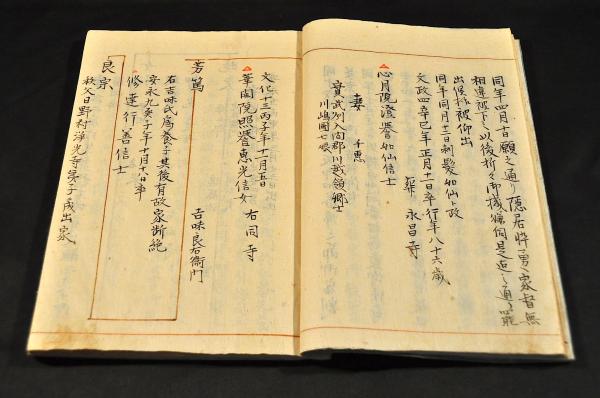 同年四月十日願之通り隠居忰勇家督無
相違被下之以後折々御機嫌伺是迄之通り罷
出候様被仰出
同年同月十三日剃髪如仙ト改
文政四辛巳年正月十一日卒行年八十六歳
葬 永昌寺
心月院澄誉如仙信士
妻 千恵
実武州入間郡川越領郷士
川嶋園七娘
文化十三丙子年十一月五日
華閣院照誉恵光信女 右同寺
芳篤 吉味良右衛門
右吉味氏為養子其後有故家断絶
安永九庚子年十月十八日卒
修達行善信士
良宗
秩父日野村浄光寺弟子成出家